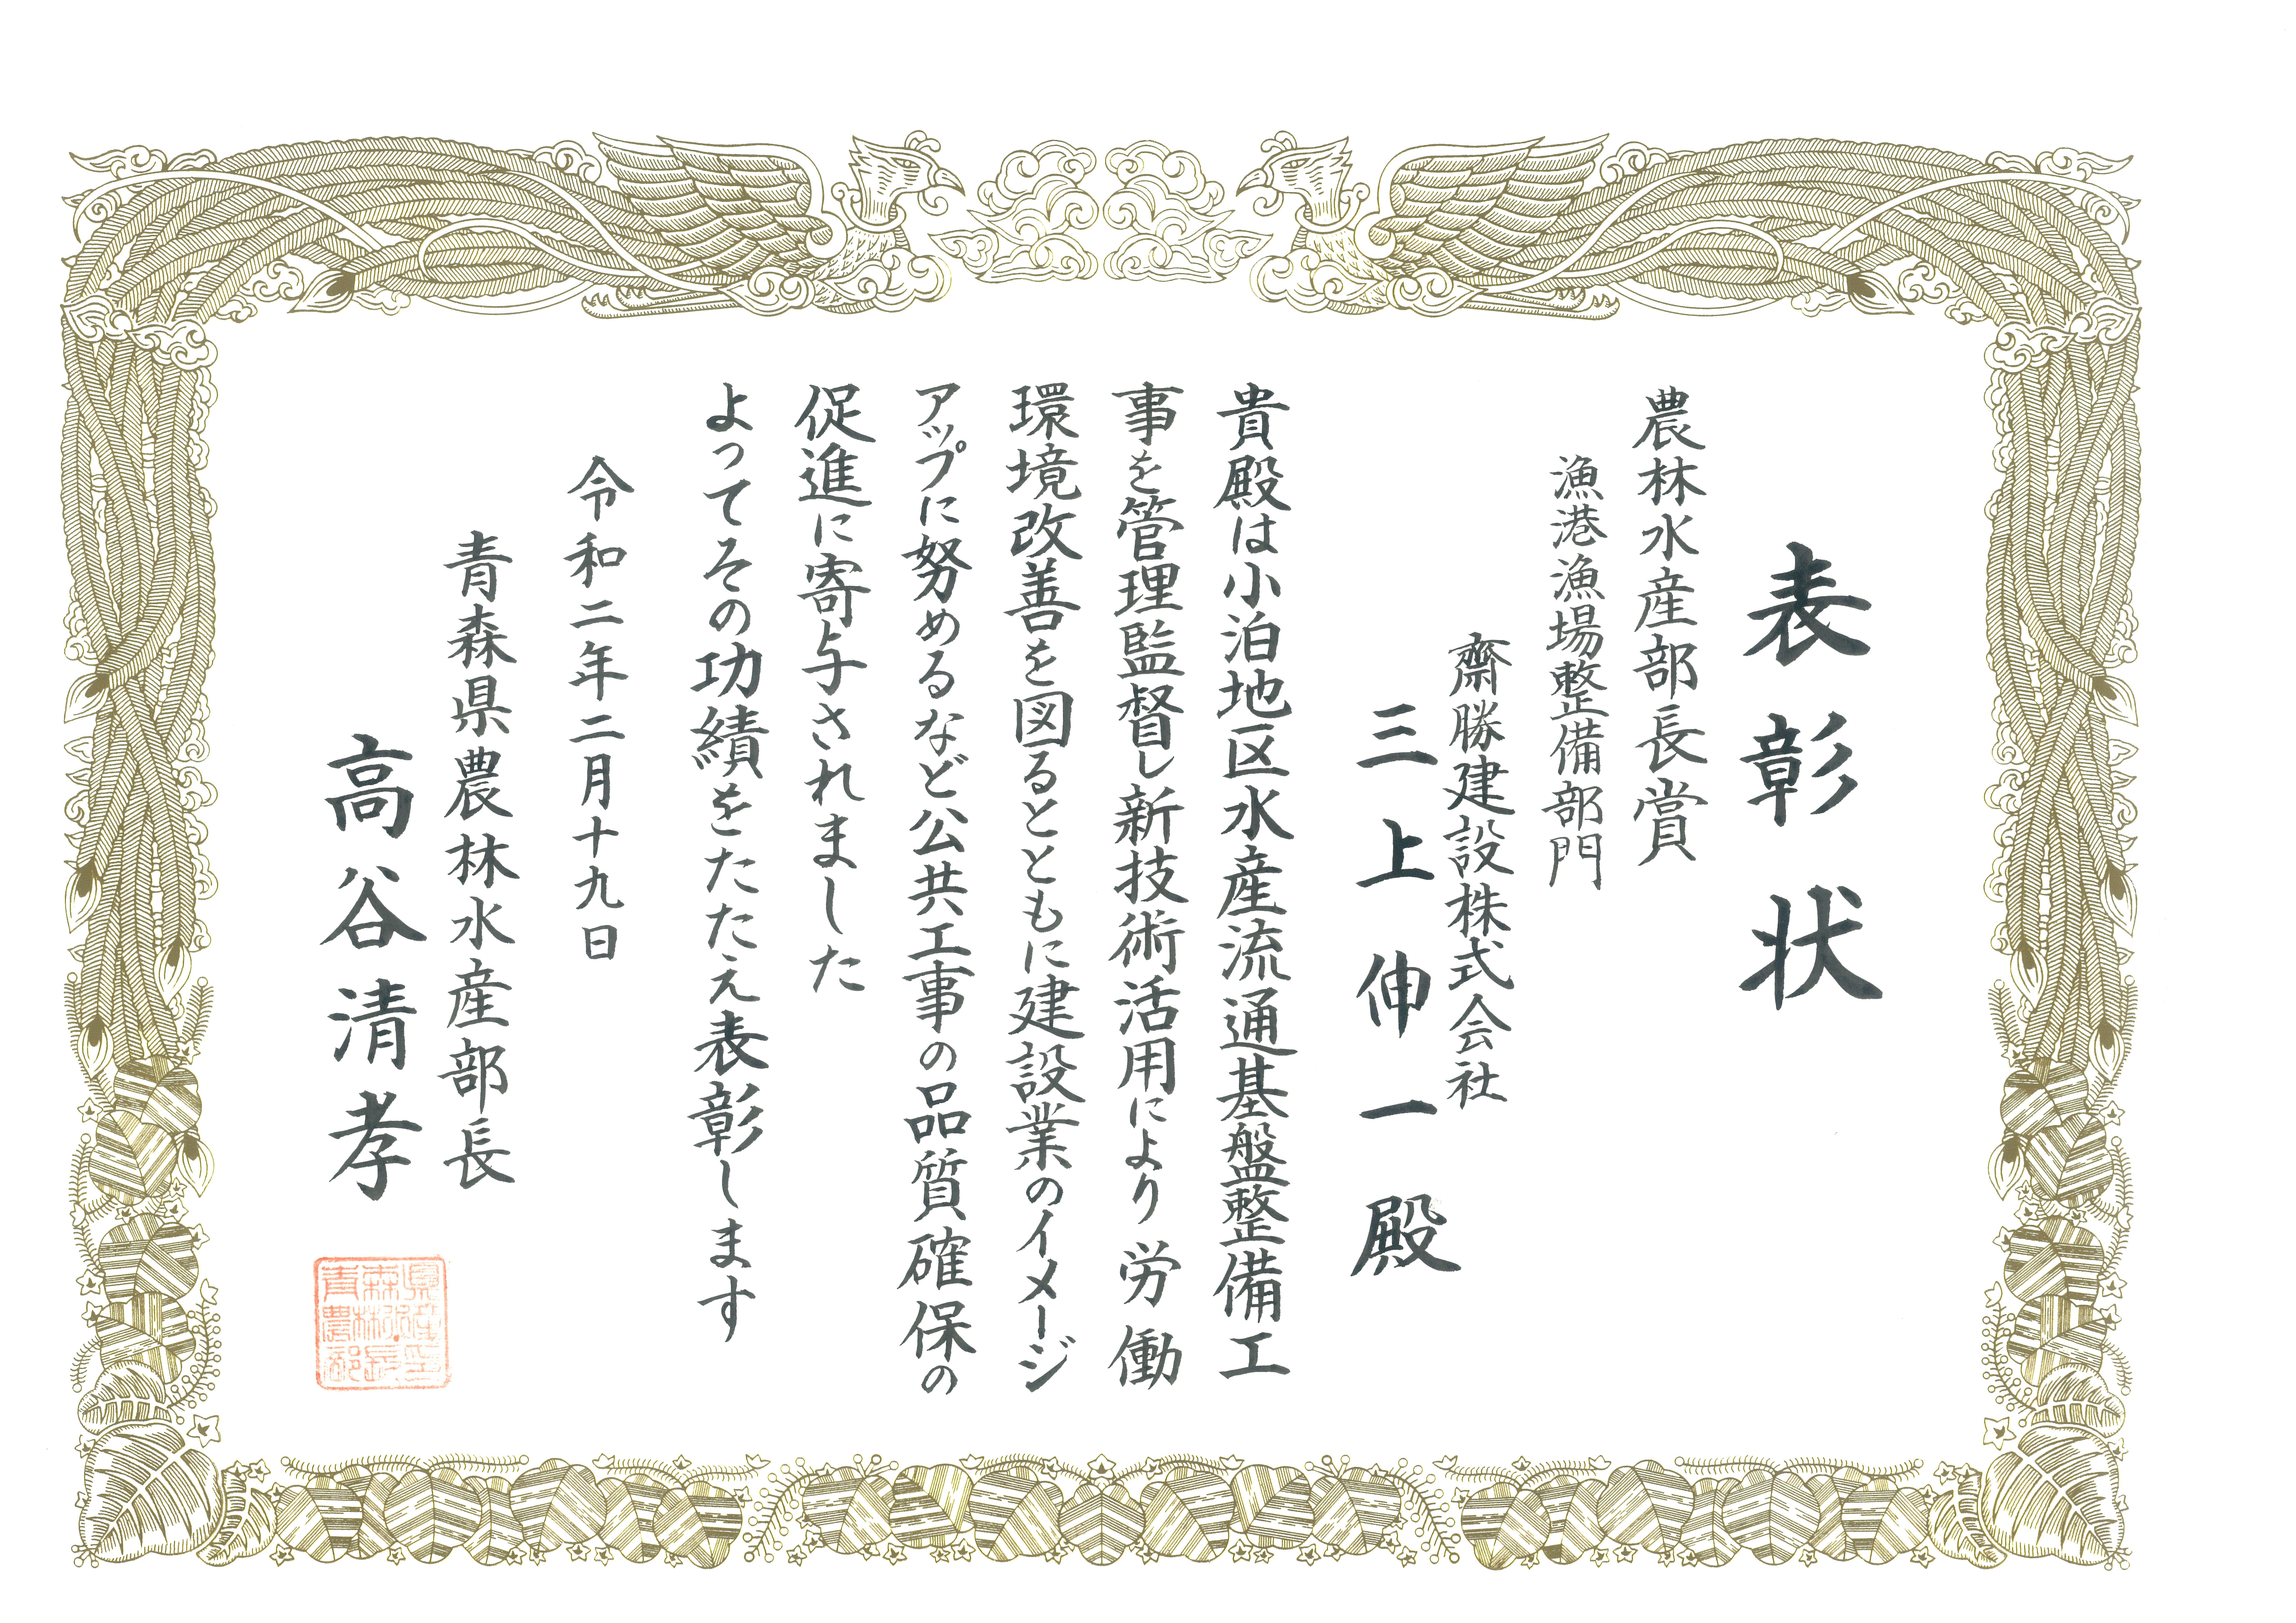 表彰状
農林水産部長賞
漁港漁場整備部門
齋勝建設株式会社
三上伸一殿
貴殿は小泊地区水産流通基盤整備工
事を管理監督し新技術活用により労働
環境改善を図るとともに建設業のイメージ
アップに努めるなど公共工事の品質確保の
促進に寄与されました
よってその功績をたたえ表彰します
令和二年二月十九日
青森県農林水産部長
高谷清孝